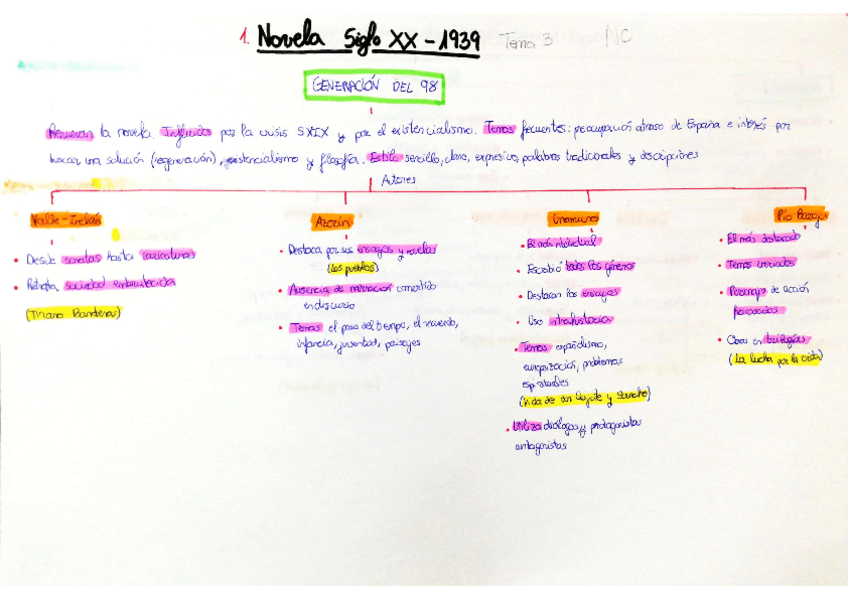 1. Novela Siglo XX - 1939 Tema 3 NC
GENERACIÓN DEL 98
Renuevan la novela. Influidos por la crisis SXIX y por el existencialismo. Temas frecuentes: preocupación atraso de España e interés por
buscar una solución (regeneración), existencialismo y filosofía. Estilo sencillo, claro, expresivo, palabras tradicionales y descripciones
Autores
Valle-Inclán
• Desde sonatas hasta caricaturas
• Refleja sociedad embrutecida
(Tirano Banderas)
Azorín
• Destaca por sus ensayos y novelas
(Los pueblos)
• Ausencia de narración convertido
en discurso
• Temas el paso del tiempo, el recuerdo,
infancia, juventud, paisajes
Unamuno
• El más intelectual
• Escribió todos los géneros
• Destacan los ensayos
• Uso intrahistoria
• Temas españolismo,
europeización, problemas
espirituales
(Vida de don Quijote y Sancho)
• Utiliza diálogos y protagonistas
antagonistas
Pío Baroja
• El más destacado
• Temas variados
• Personajes de acción
fracasados
• Obras en trilogías
(La lucha por la vida)